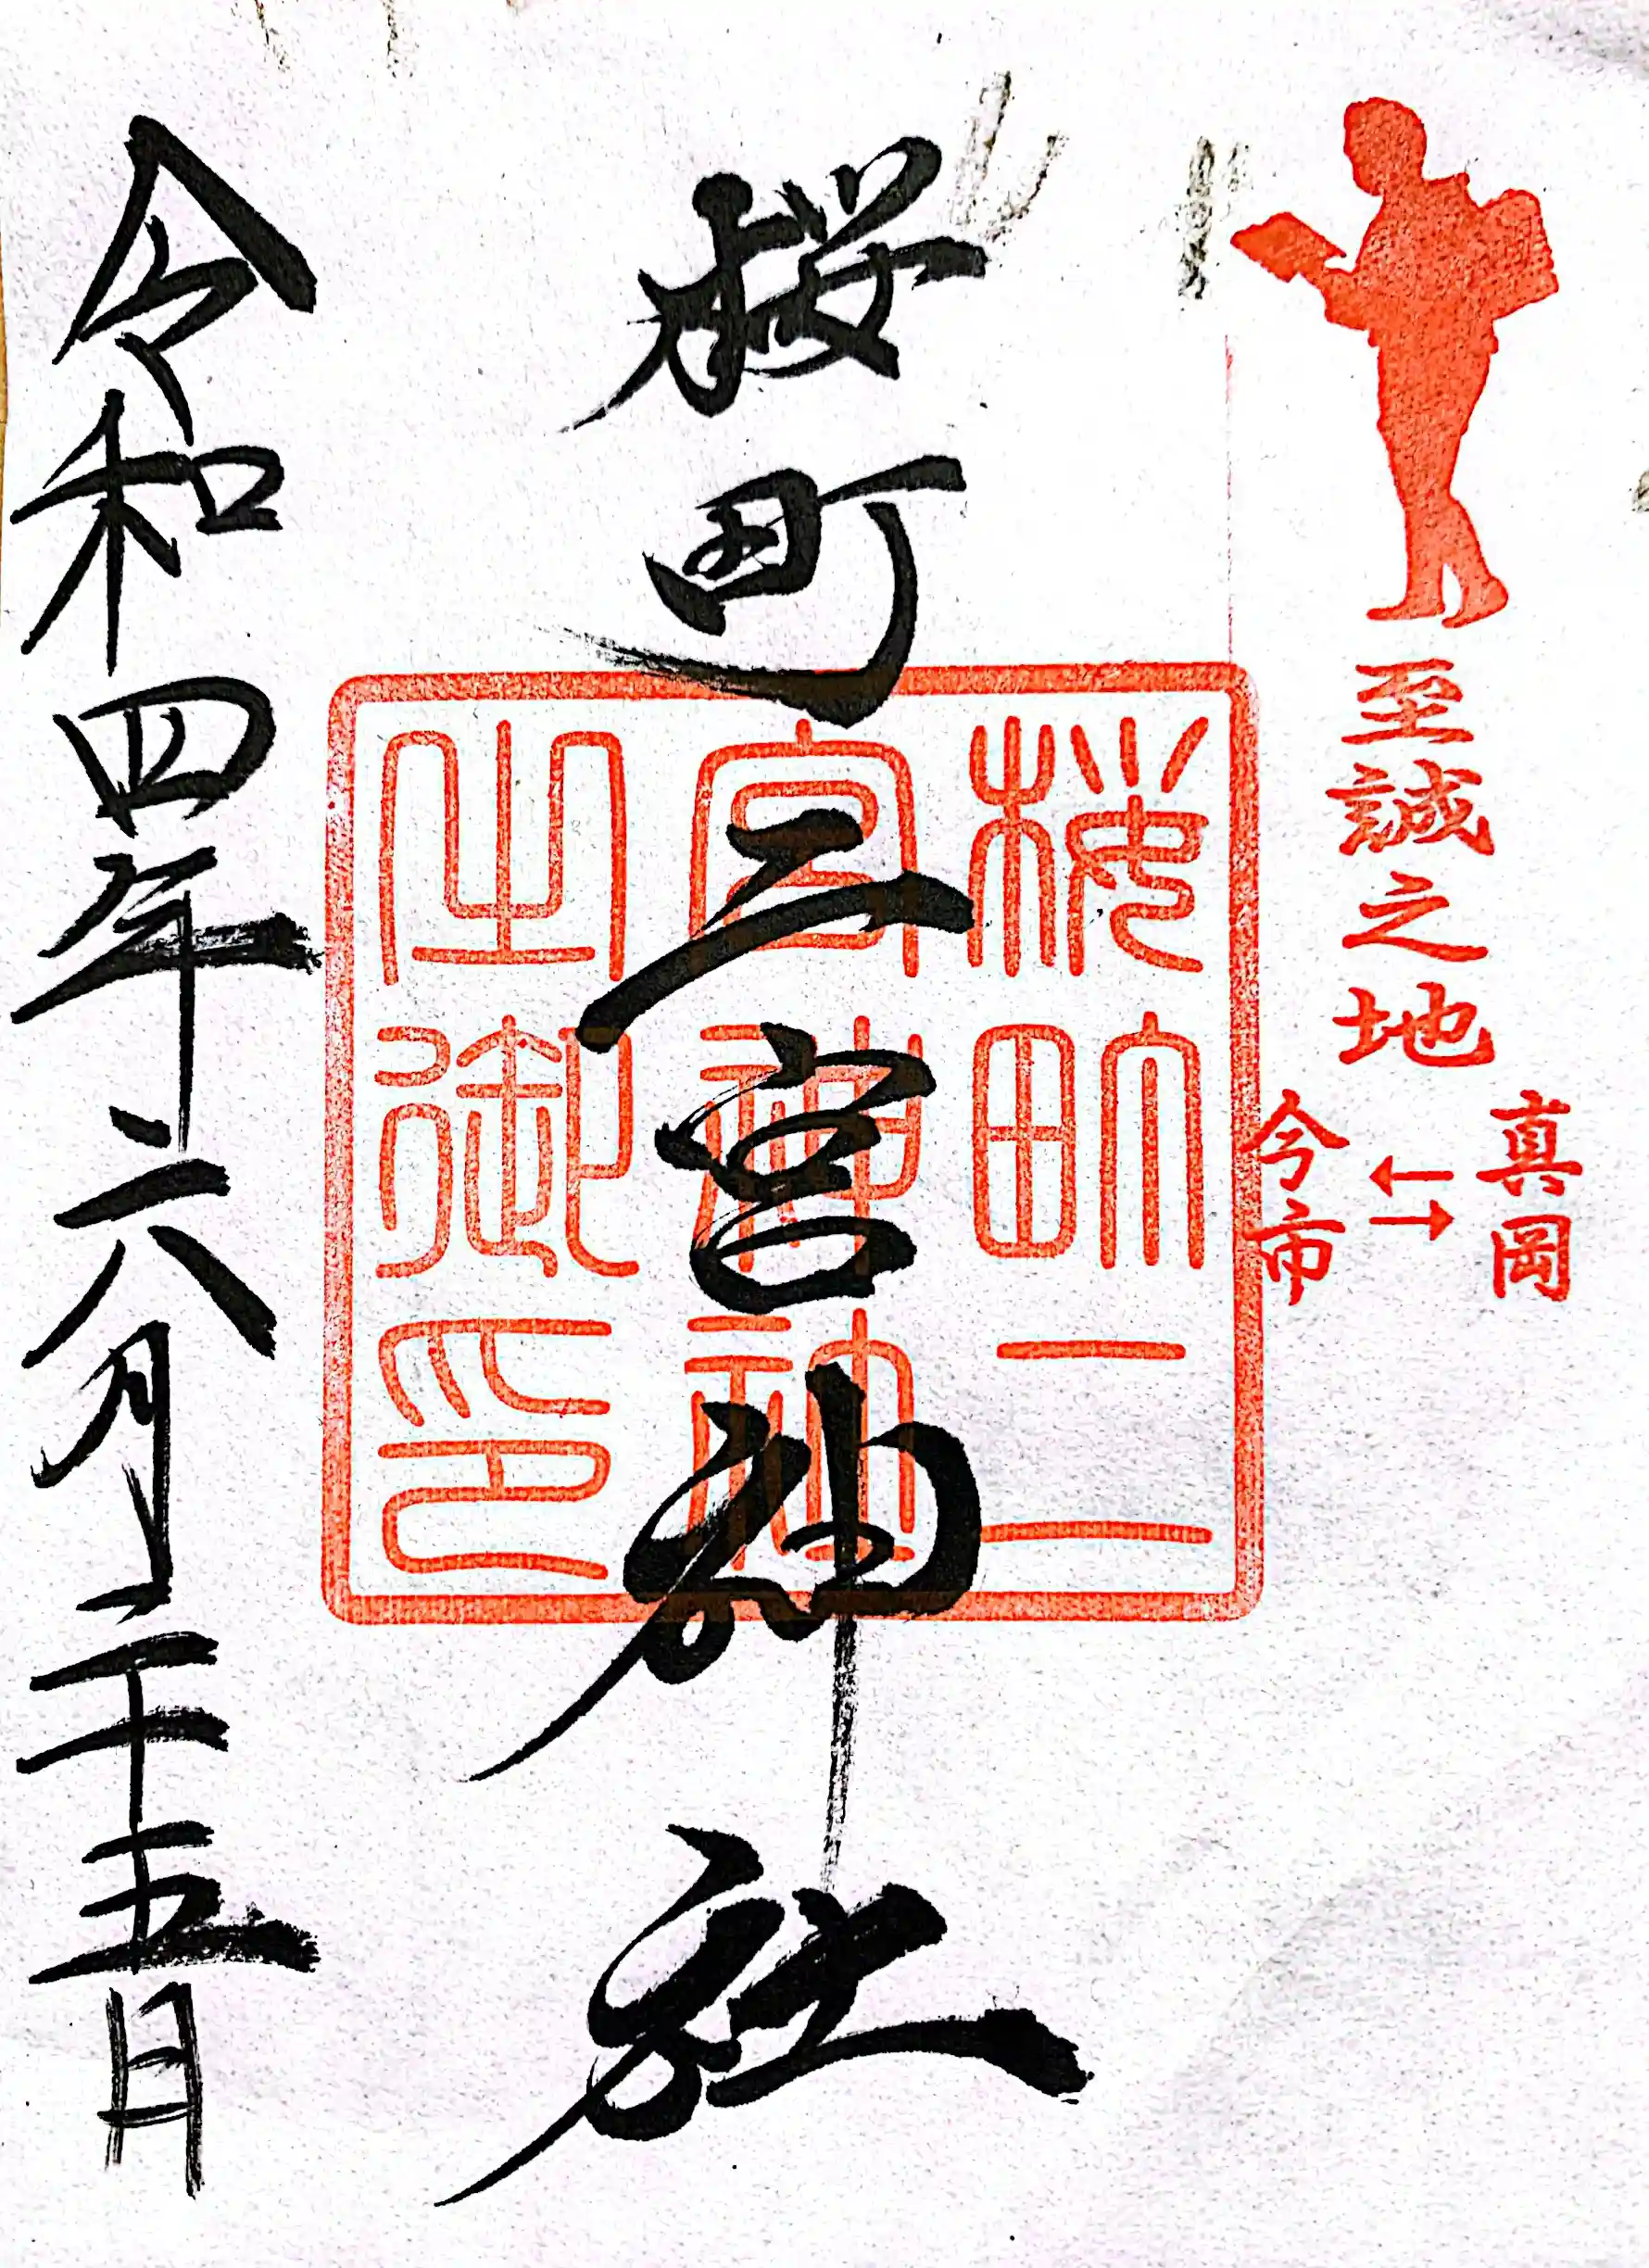 至誠之地
真岡
今市
桜町二宮神社
桜町二
宮神社
之御印
令和四年六月二十五日